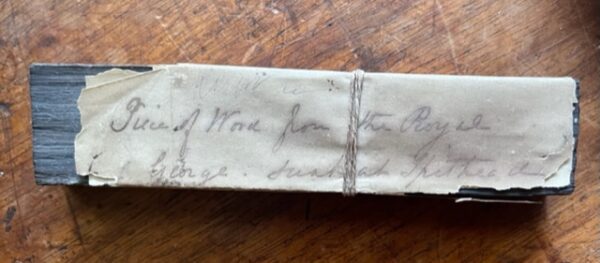 Piece of Wood from the Royal
George. sunk at Spithead